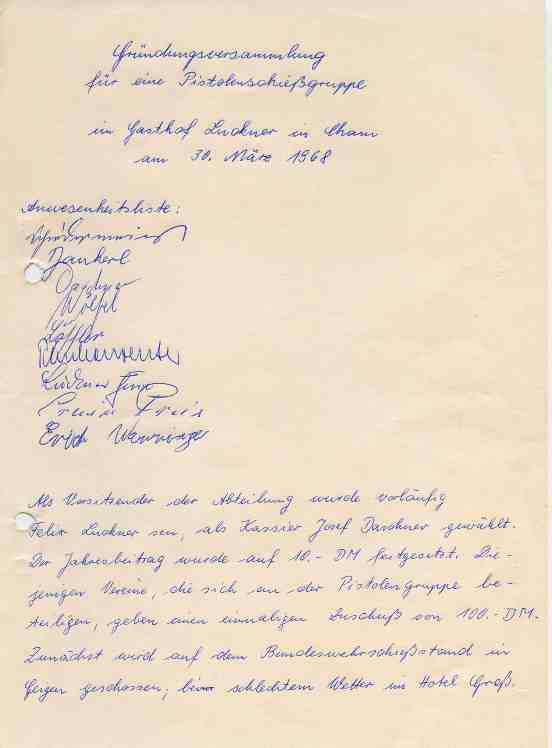 Gründungsversammlung
für eine Pistolenschießgruppe
im Gasthof Luckner in Cham
am 30. März 1968
Anwesenheitsliste:
Jankerl
Daschner
Wölfel
Löffler
Luckner
Erwin
Erich
Als Vorsitzender der Abteilung wurde vorläufig
Felix Luckner sen, als Kassier Josef Daschner gewählt.
Der Jahresbeitrag wurde auf 10.- DM festgesetzt. Die-
jenigen Vereine, die sich an der Pistolengruppe be-
teiligen, geben einen einmaligen Zuschuß von 100.- DM.
Zunächst wird auf dem Bundeswehrschießstand in
geschossen, bei schlechtem Wetter im Hotel Groß.